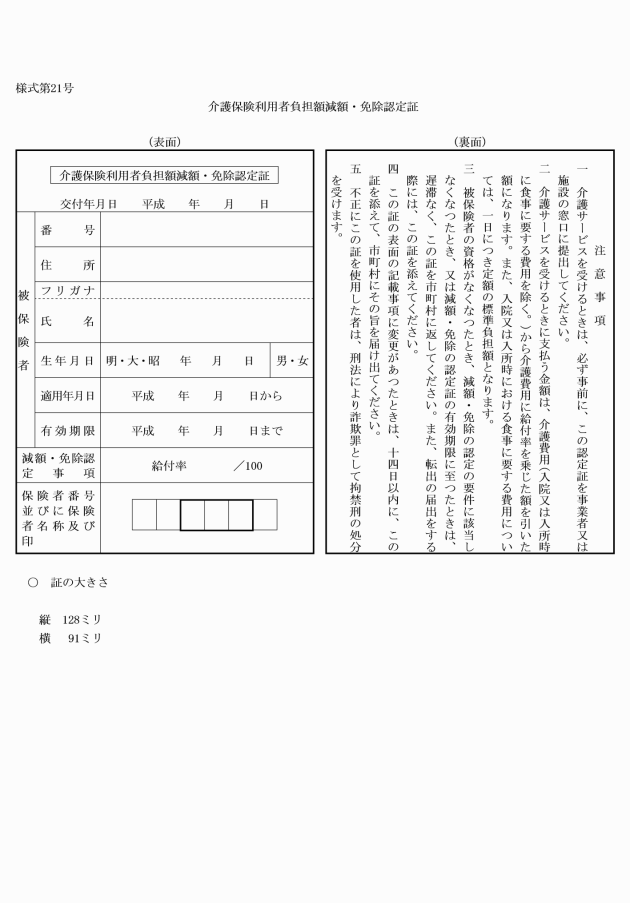 様式第21号
介護保険利用者負担額減額・免除認定証
（表面）
介護保険利用者負担額減額・免除認定証
交付年月日　平成　年　月　日
被保険者
番　号
住　所
フリガナ
氏　名
生年月日　明・大・昭　年　月　日　男・女
適用年月日　平成　年　月　日から
有効期限　平成　年　月　日まで
減額・免除認
定　事　項
給付率　／100
保険者番号
並びに保険
者名称及び
印
（裏面）
注　意　事　項
一　介護サービスを受けるときは、必ず事前に、この認定証を事業者又は
施設の窓口に提出してください。
二　介護サービスを受けるときに支払う金額は、介護費用（入院又は入所時
に食事に要する費用を除く。）から介護費用に給付率を乗じた額を引いた
額になります。また、入院又は入所時における食事に要する費用につい
ては、一日につき定額の標準負担額となります。
三　被保険者の資格がなくなつたとき、減額・免除の認定の要件に該当し
なくなつたとき、又は減額・免除の認定証の有効期限に至つたときは、
遅滞なく、この証を市町村に返してください。また、転出の届出をする
際には、この証を添えてください。
四　この証の表面の記載事項に変更があつたときは、十四日以内に、この
証を添えて、市町村にその旨を届け出てください。
五　不正にこの証を使用した者は、刑法により詐欺罪として拘禁刑の処分
を受けます。
○　証の大きさ
縦　128ミリ
横　91ミリ